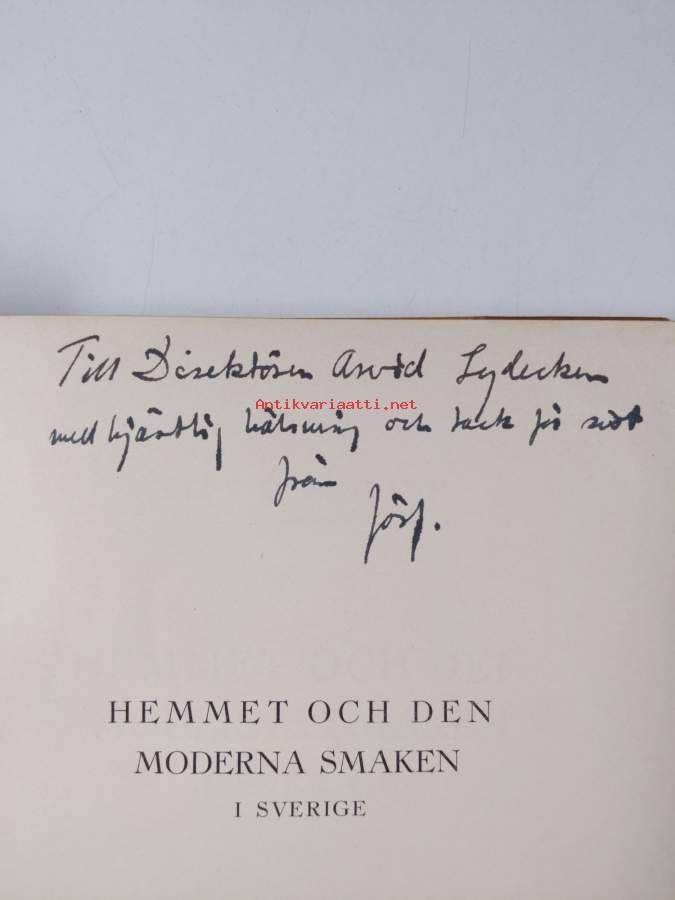 Till Direktören Arvid Lydecken
Antikvariaatti.net
med hjärtlig hälsning och tack för sist
från
förf.
HEMMET OCH DEN
MODERNA SMAKEN
I SVERIGE